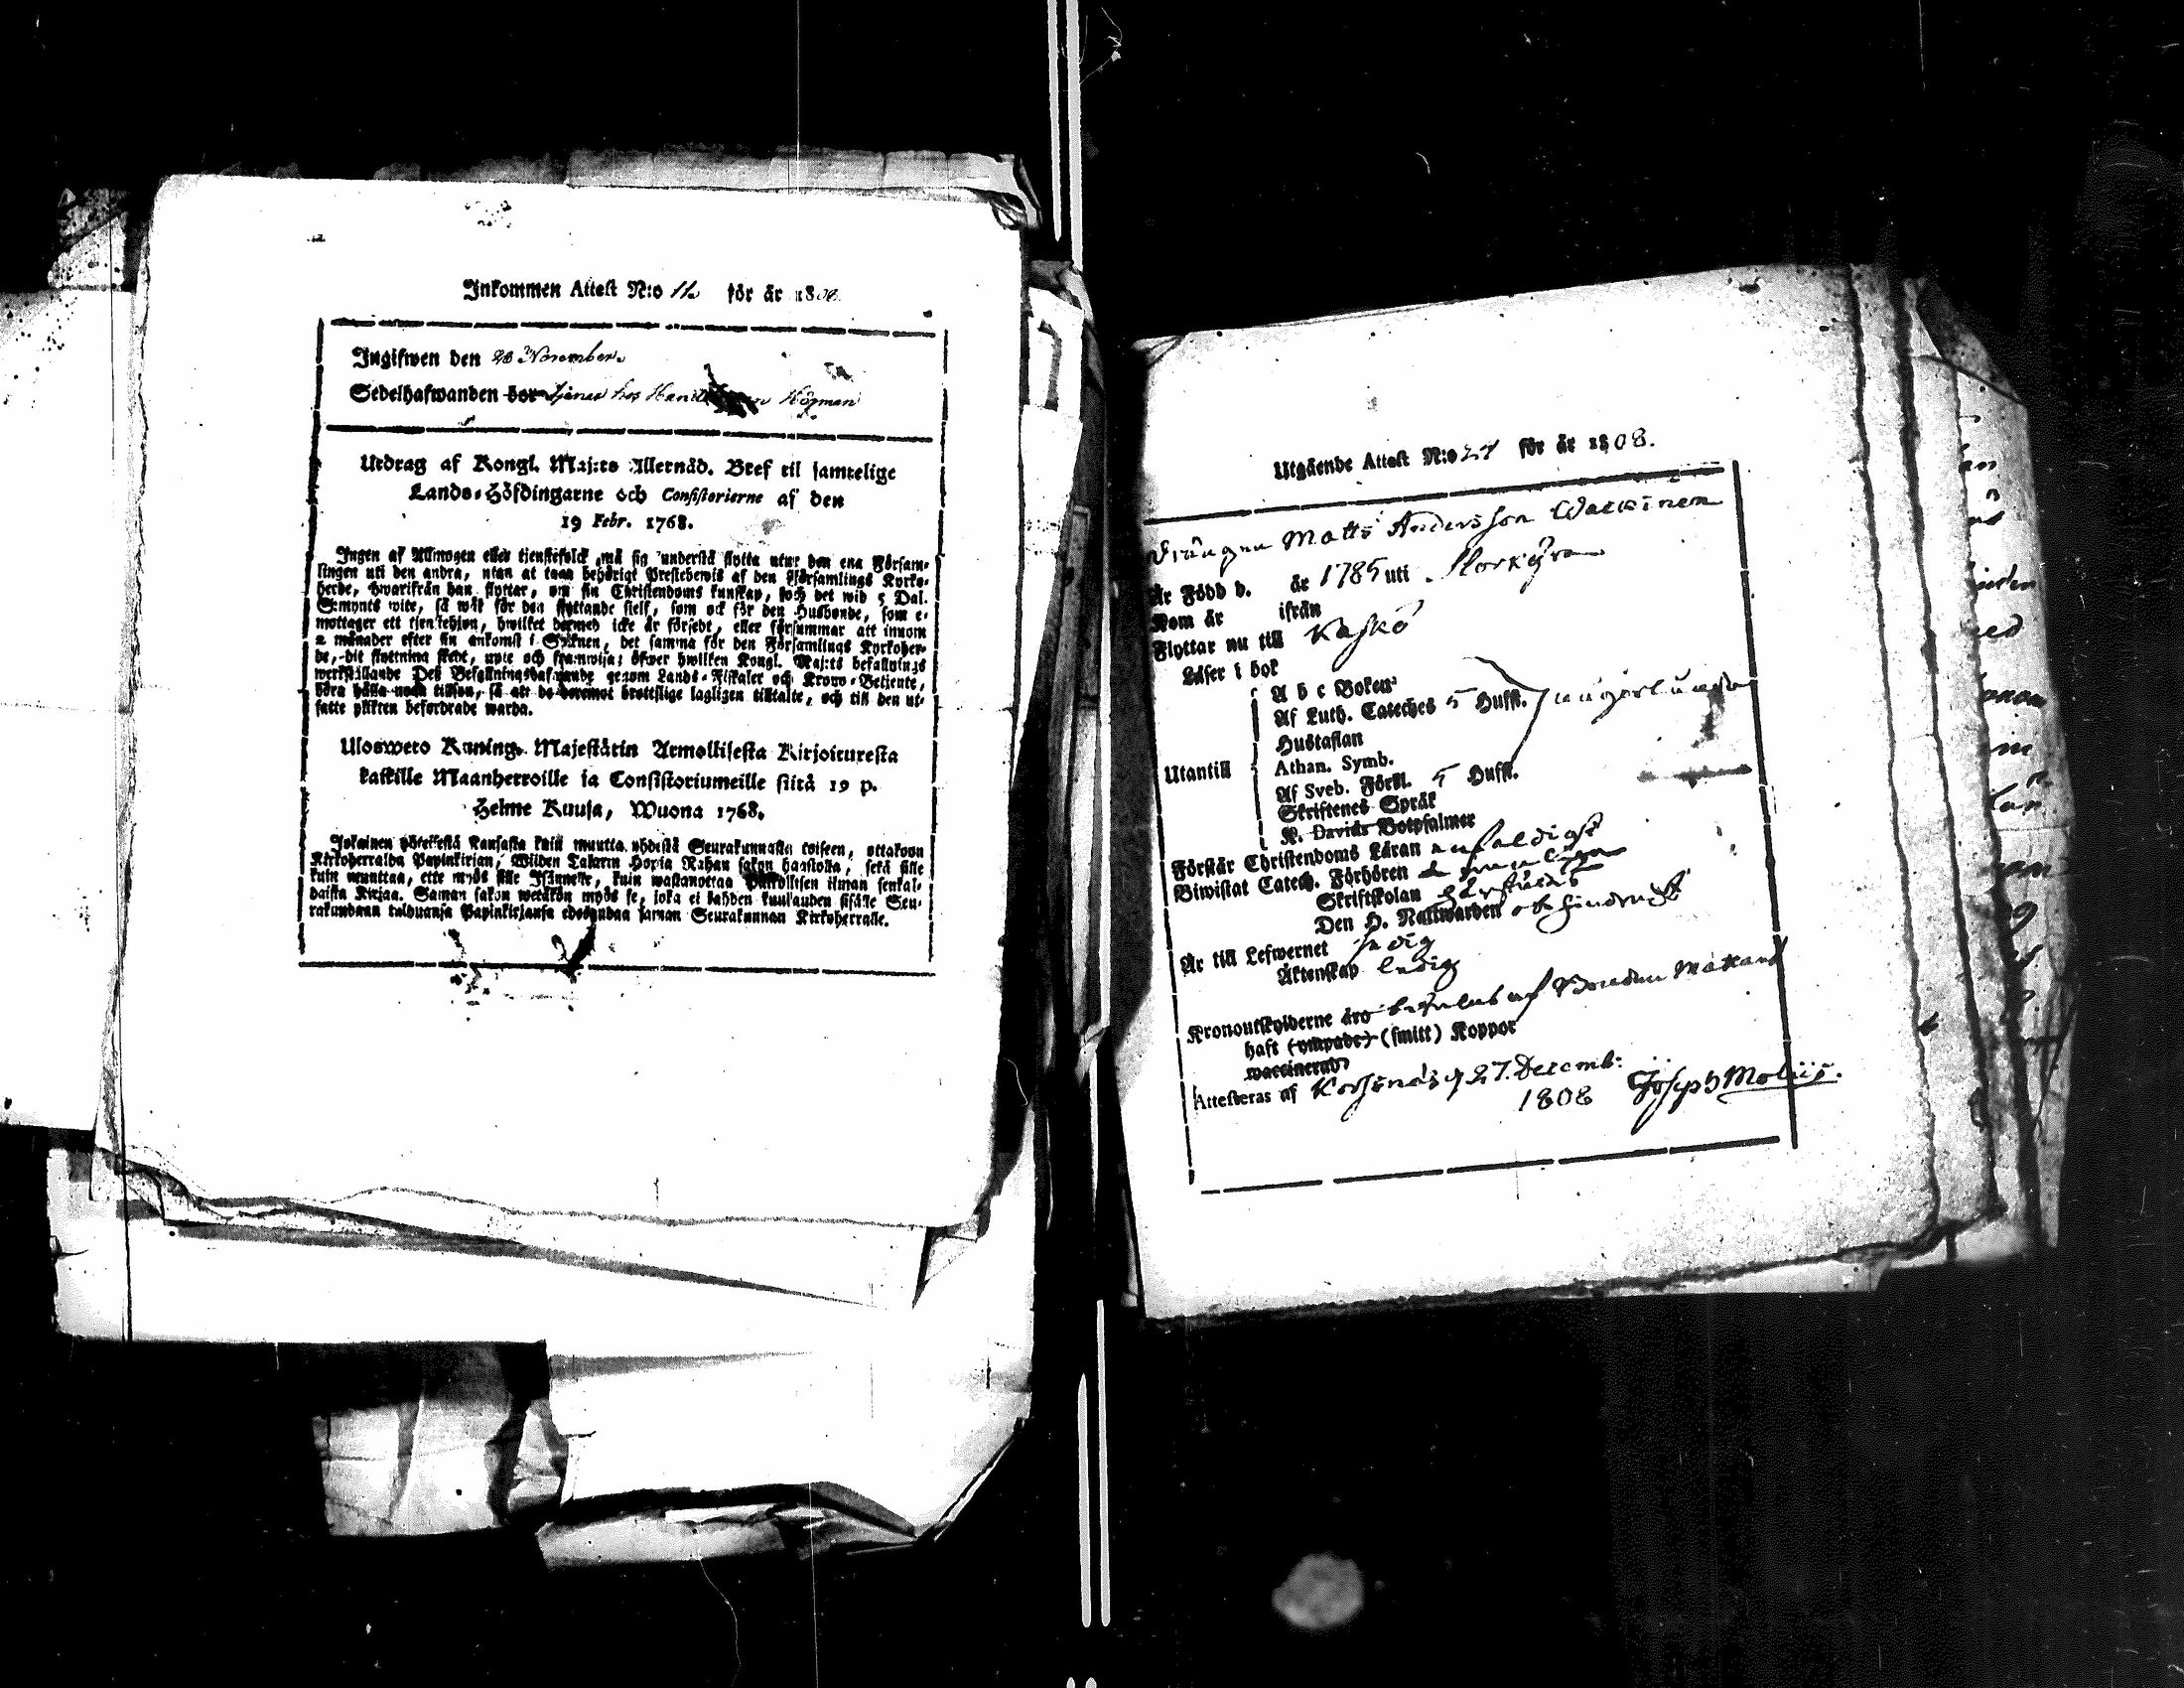 Inkommen Attest N:o 11. för år 1808.
Ingifwen den 28 November.
Sedelhafwanden bor tjenar hos Högman
Utdrag af Kongl. Maj:ts Allernåd. Bref til samtelige
Lands-Höfdingarne och Consistorierne af den
19 Febr. 1768.
Ingen af Allmogen eller tienstefolck må sig understå flytta utur den ena Försam-
lingen uti den andra, utan at taga behörigt Prestebewis af den Församlings Kyrko-
herde, hwarifrån han flyttar, om sin Christendoms kunskap, och det wid 5 Dal.
S:mynts wite, så wäl för den flyttande sielf, som ock för den Husbonde, som e-
mottager ett tjenstehjon, hwilket dermed icke är försedt, eller försummar att innom
2 månader efter sin ankomst i Socknen, det samma för den Församlings Kyrkoher-
de, dit flyttning skedt, upte och framwisa; öfwer hwilken Kongl. Maj:ts befallnings
werkställande Des Befallningshafwande genom Lands-Fiskaler och Krono-Betjente,
böra hålla noga tillsyn, så att de deremot brottslige lagligen tilltalte, och till den ut-
satte plikten befordrade warda.
Ulosweto Kuning. Majestätin Armollisesta Kirjoituresta
kaikille Maanherroille ja Consistoriumeille siitä 19 p.
Helme Kuusa, Wuona 1768.
Jokainen yhteisestä Kansasta kuin muutta yhdestä Seurakunnasta toiseen, ottakoon
Kirkoherralda Papinkirjan, Wiiden Talarin Hopia Rahan sakon haastolla, sekä sille
kuin muuttaa, ette myös sille Isännelle, kuin wastanottaa Palkollisen ilman senkal-
daista Kirjaa. Saman sakon wetäkön myös se, joka ei kahden kuukauden sisälle Seu-
rakundaan tulduansa Papinkirjansa edesandaa saman Seurakunnan Kirkoherralle.
Utgående Attest N:o 24 för år 1808.
Drängen Matts Andersson Walkinen
Är Född d. år 1785 uti Storkyro
Kom år ifrån
Flyttar nu till Kaskö
Läser i bok
A b c Boken
Af Luth. Cateches 5 Hufst.
Hustaflan
Utantill Athan. Symb.
Af Sveb. Förkl. 5 Hufst.
Skriftenes Språk
K. Davids Botpsalmer
Förstår Christendoms Läran enfaldigt
Biwistat Catech. Förhören
Skriftskolan
Den H. Nattwarden och hindersfri
Är till Lefwernet
Äktenskap ledig
Kronoutskylderne äro betalas af Bonden
haft (ympade) (smitt) Koppor
waccinerad
Attesteras af Korsnäs d 27. Decemb:
1808 Joseph Moliis.